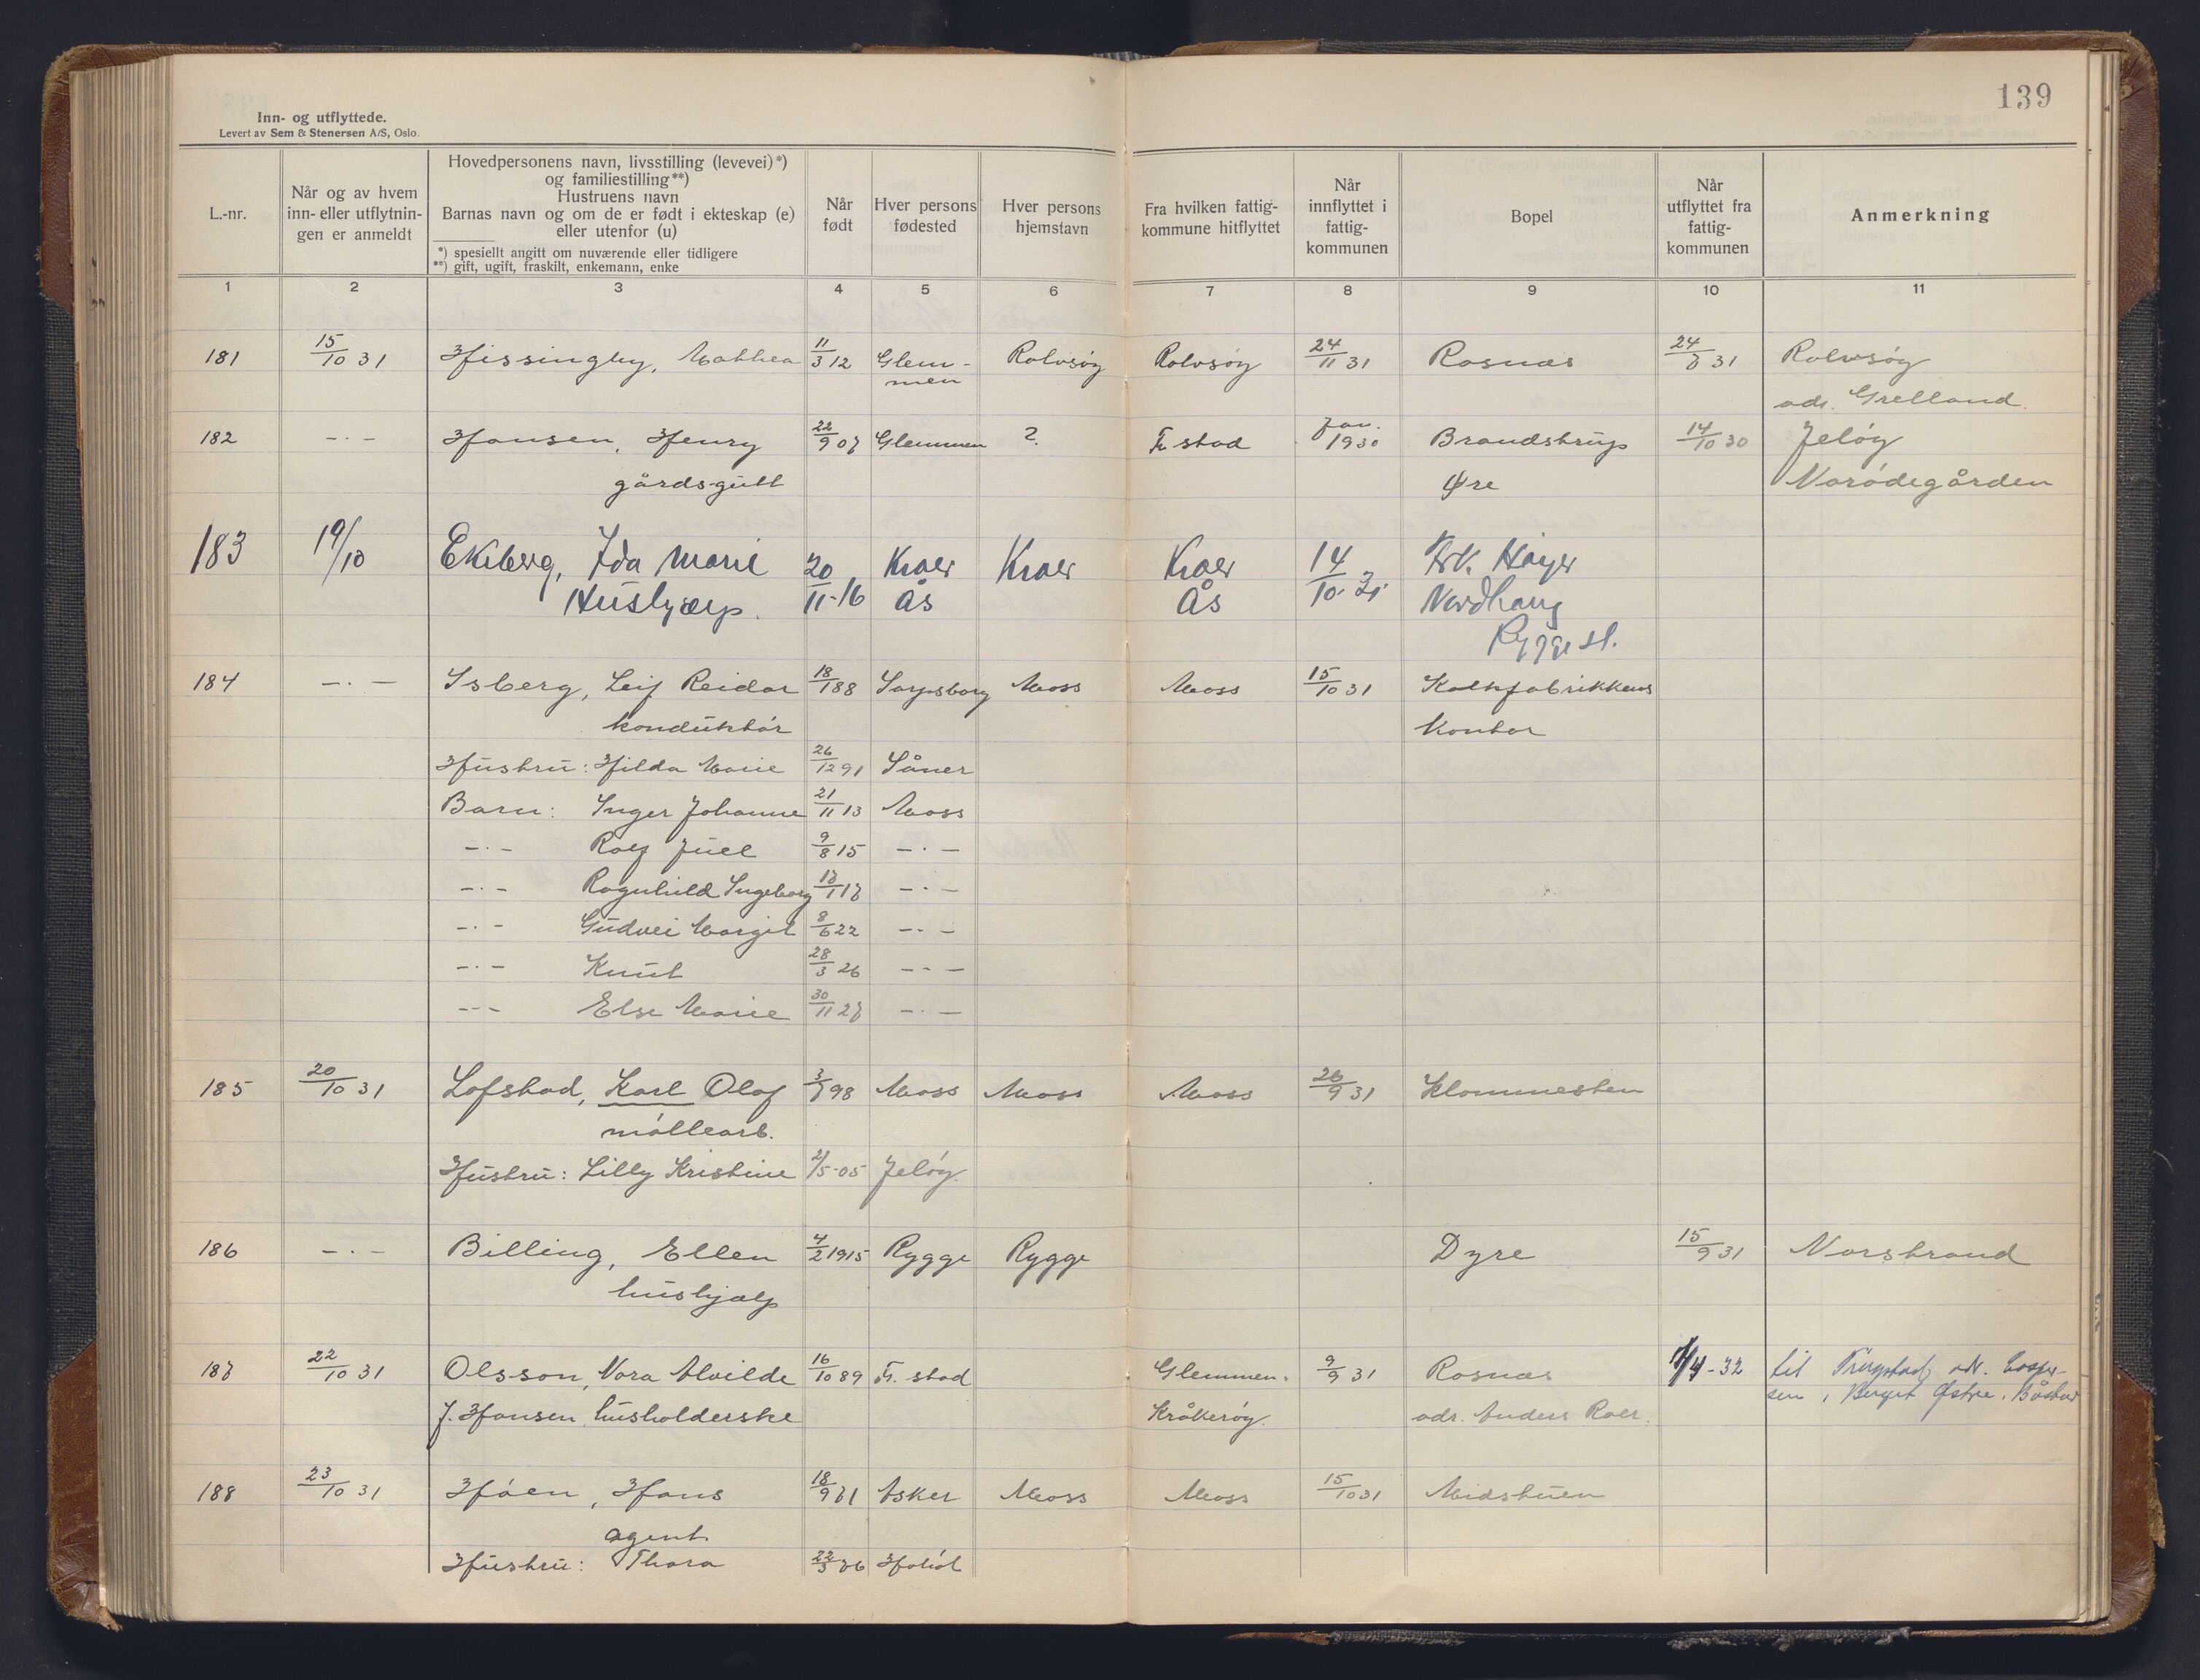 139
Inn- og utflyttede.
Levert av Sem & Stenersen A/S, Oslo.
L.-nr.
Når og av hvem
inn- eller utflytnin-
gen er anmeldt
Hovedpersonens navn, livsstilling (levevei)*)
og familiestilling**)
Hustruens navn
Barnas navn og om de er født i ekteskap (e)
eller utenfor (u)
*) spesiellt angitt om nuværende eller tidligere
**) gift, ugift, fraskilt, enkemann, enke
Når
født
Hver persons
fødested
Hver persons
hjemstavn
Fra hvilken fattig-
kommune hitflyttet
Når
innflyttet i
fattig-
kommunen
Bopel
Når
utflyttet fra
fattig-
kommunen
Anmerkning
1 2 3 4 5 6 7 8 9 10 11
181 15/10 31 Hissingby, Mathea 11/3 12 Glem- Rolvsøy Rolvsøy 24/11 31 Rosnæs 24/8 31 Rolvsøy
men adr. Grelland.
182 -·- Hansen, Henry 22/9 07 Glemmen ? Fr.stad Jan. 1930 Brandstrup 14/10 30 Jeløy
gårdsgutt Øre Norødegården
183 19/10 Ekeberg, Ida Marie 20/11-16 Kroer Kroer Kroer 14/10 31 Frk. Høyer
Hushjælp. Ås Ås Nordhaug
Rygge st.
184 -·- Isberg, Leif Reidar 18/1 88 Sarpsborg Moss Moss 15/10 31 Kalkfabrikkens
konduktør Kontor
Hustru: Hilda Marie 26/12 91 Såner
Barn: Inger Johanne 21/11 13 Moss
-·- Rolf Juel 9/8 15 -·-
-·- Ragnhild Ingeborg 17/1 17 -·-
-·- Gudvei Margit 8/6 22 -·-
-·- Knut 28/3 26 -·-
-·- Else Marie 30/11 27 -·-
185 20/10 31 Lofstad, Karl Olaf 3/7 98 Moss Moss Moss 26/9 31 Klommesten
møllearb.
Hustru: Lilly Kristine 2/5-05 Jeløy.
186 -·- Billing, Ellen 4/2 1915 Rygge Rygge Dyre 15/9 31 Norstrand
hushjælp
187 22/10 31 Olsson, Nora Alvilde 16/10 89 Fr. stad Glemmen. 9/9 31 Rosnæs /4-32 til Trøgstad, adr. Casper-
f. Hansen, husholderske Kråkerøy. adr. Anders Roer. sen, Berget Østre, Båstad
188 23/10 31 Høen, Hans 18/9 71 Asker Moss Moss 15/10 31 Midstuen
agent
Hustru: Thora 22/3 76 Hobøl